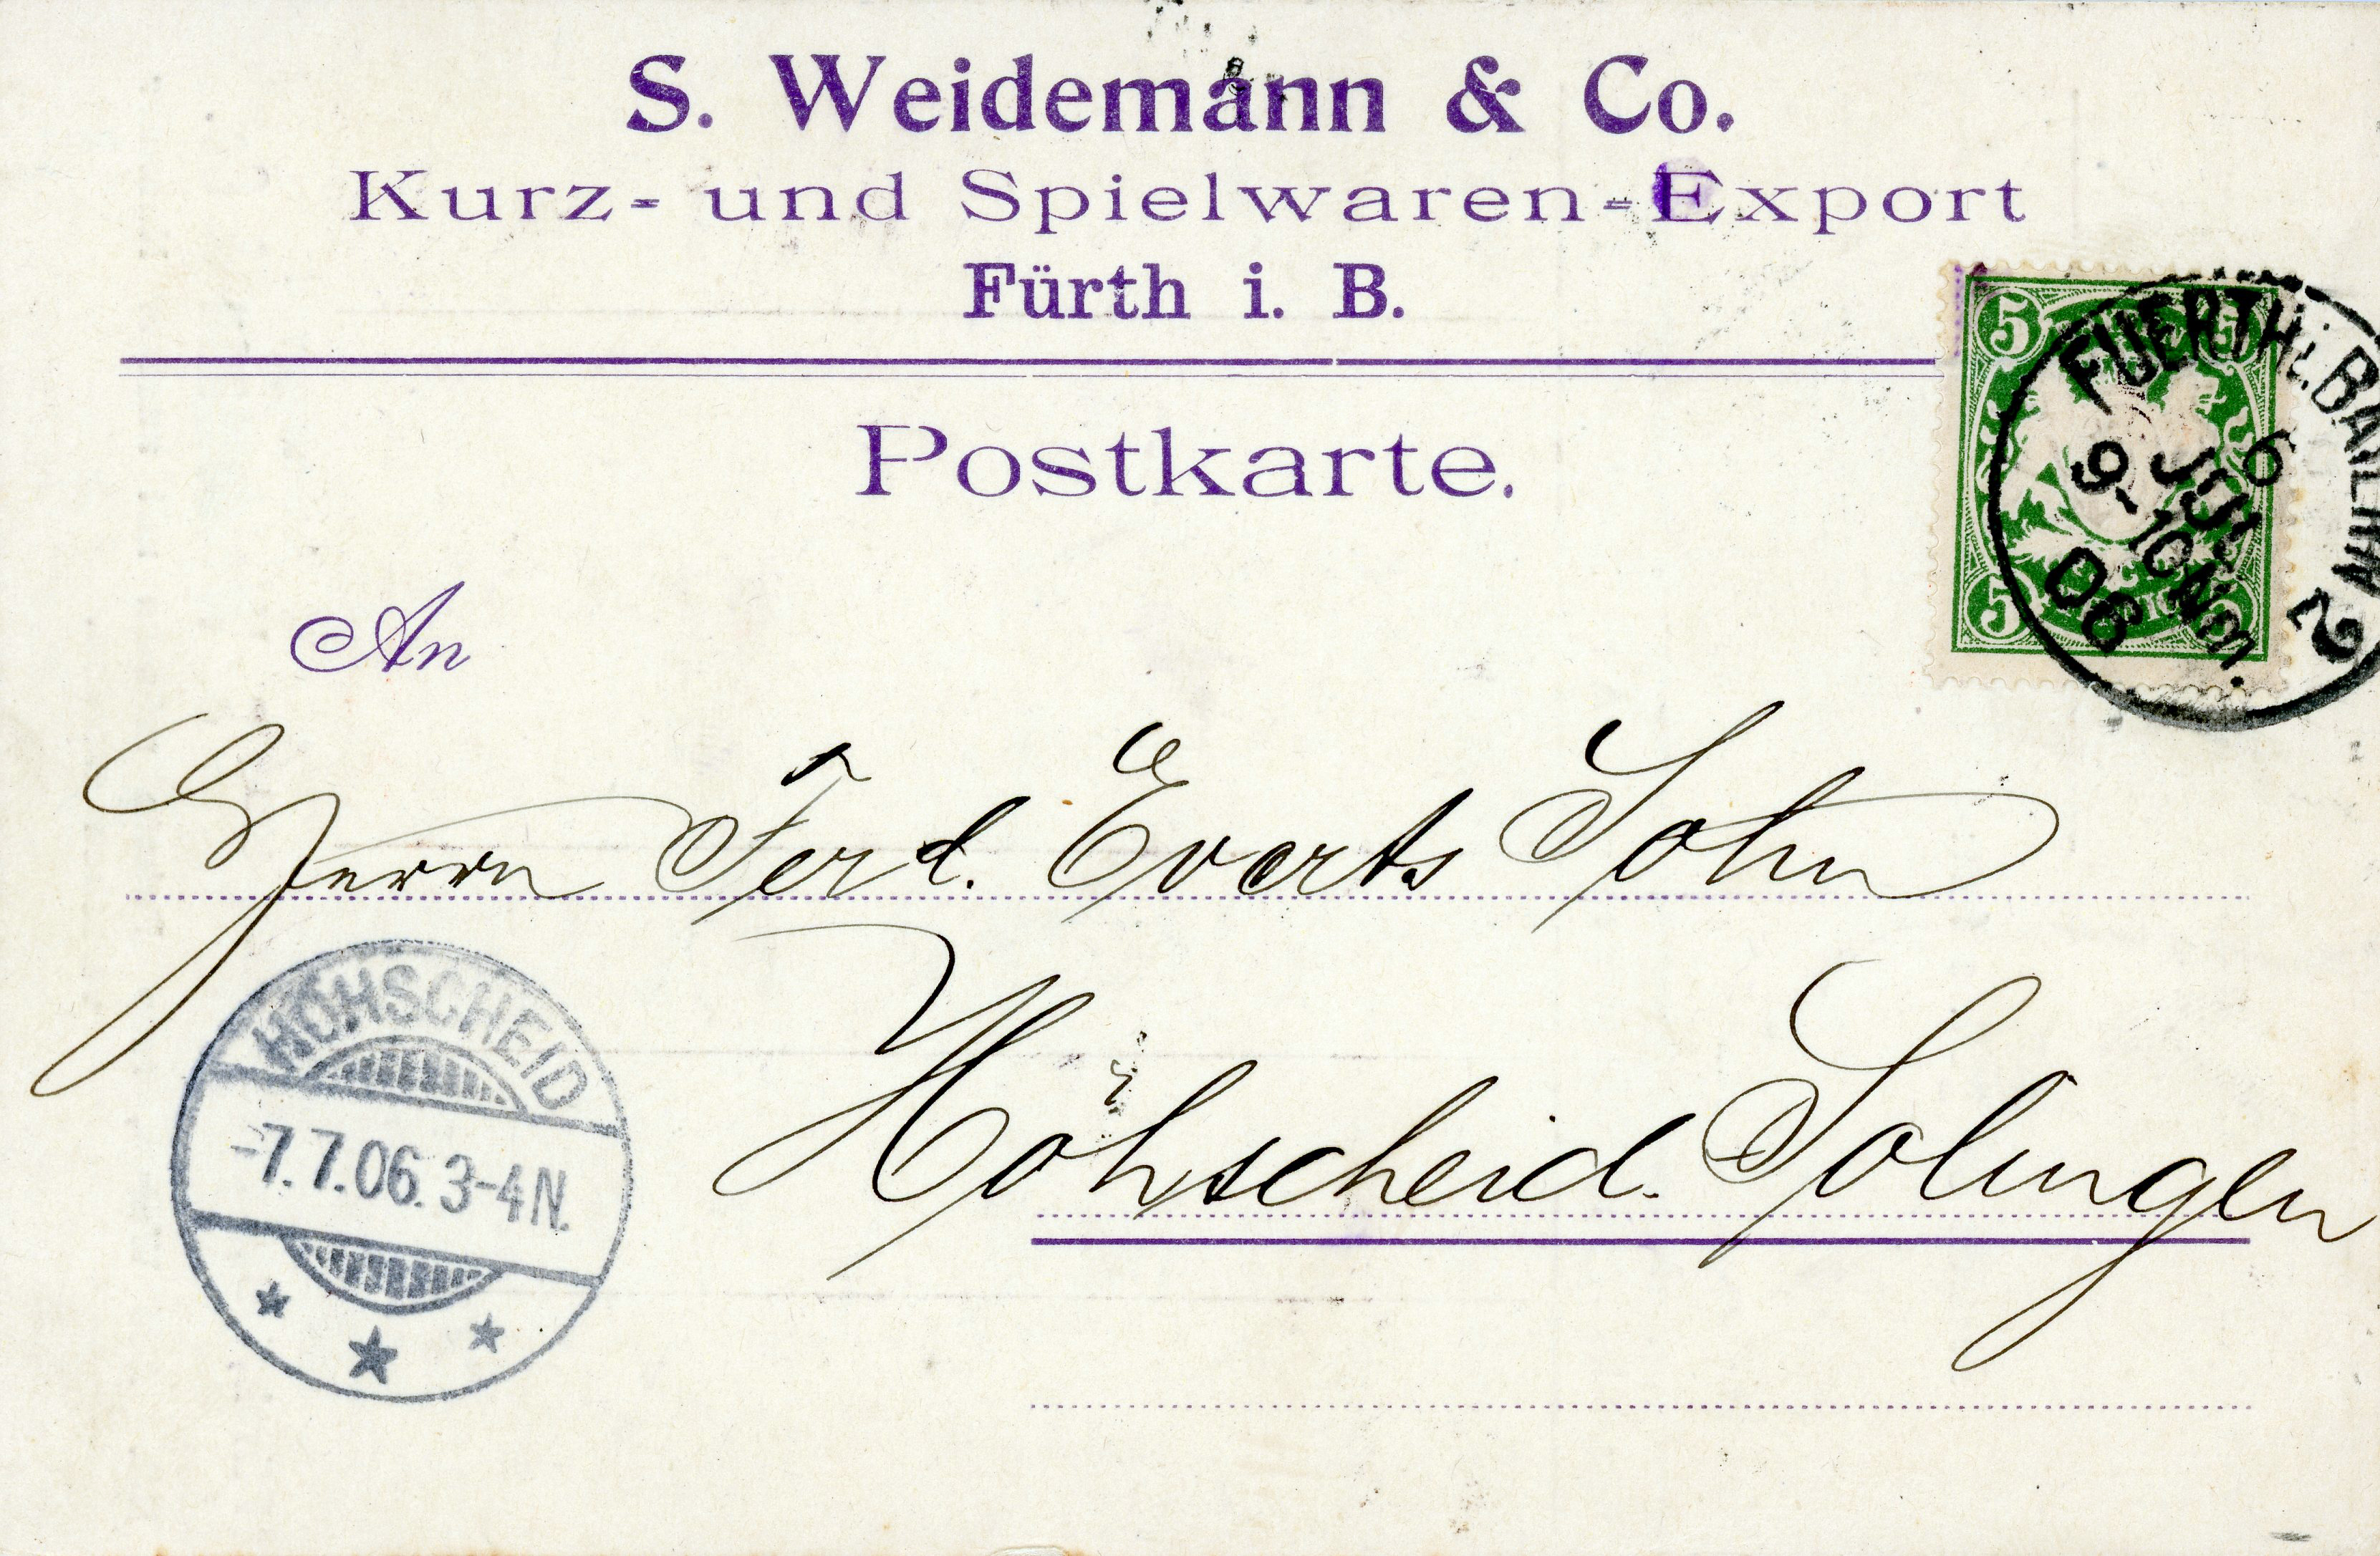 S. Weidemann & Co.
Kurz- und Spielwaren-Export
Fürth i. B.
Postkarte.
5 5
FUERTH i. BAYERN 2
6 JUL
9-10 Nm.
06
5 5
An
Herrn Ferd. Everts Sohn
Höhscheid. Solingen
HÖHSCHEID
-7.7.06. 3-4 N.